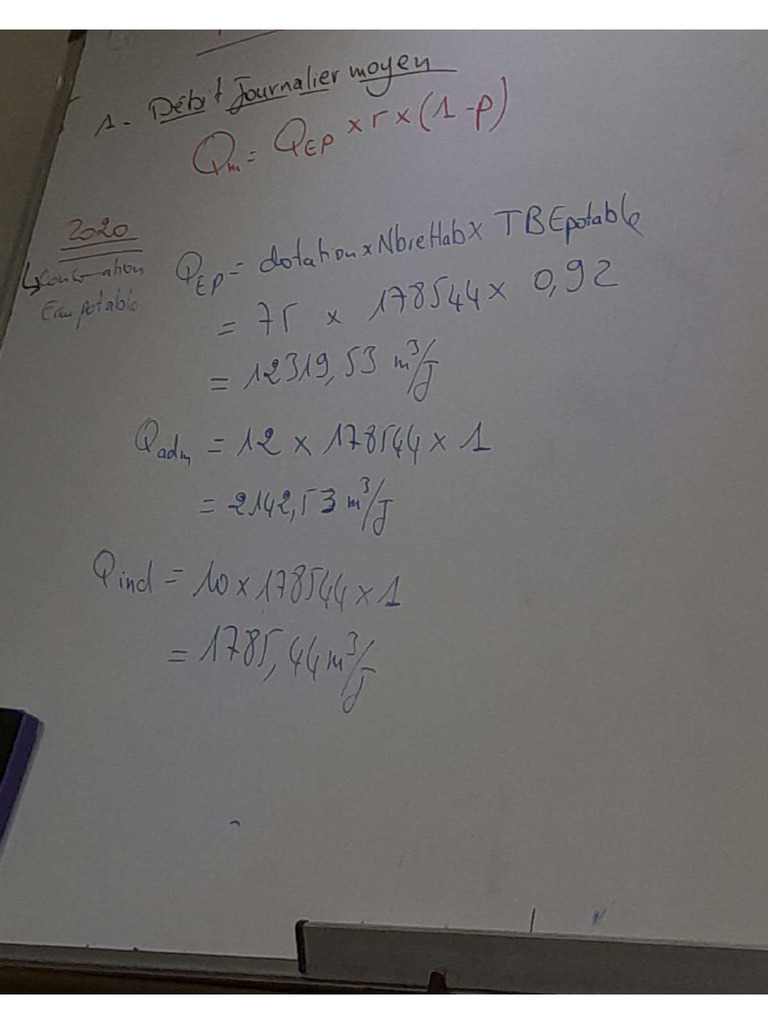 1- Débit Journalier moyen
Qm = QEP × r × (1-p)
2020
↳ Consommation
Eau potable
QEP = dotation × Nbre Hab × TBEpotable
= 75 × 178544 × 0,92
= 12319,53 m³/J
Qadm = 12 × 178544 × 1
= 2142,53 m³/J
Qind = 10 × 178544 × 1
= 1785,44 m³/J